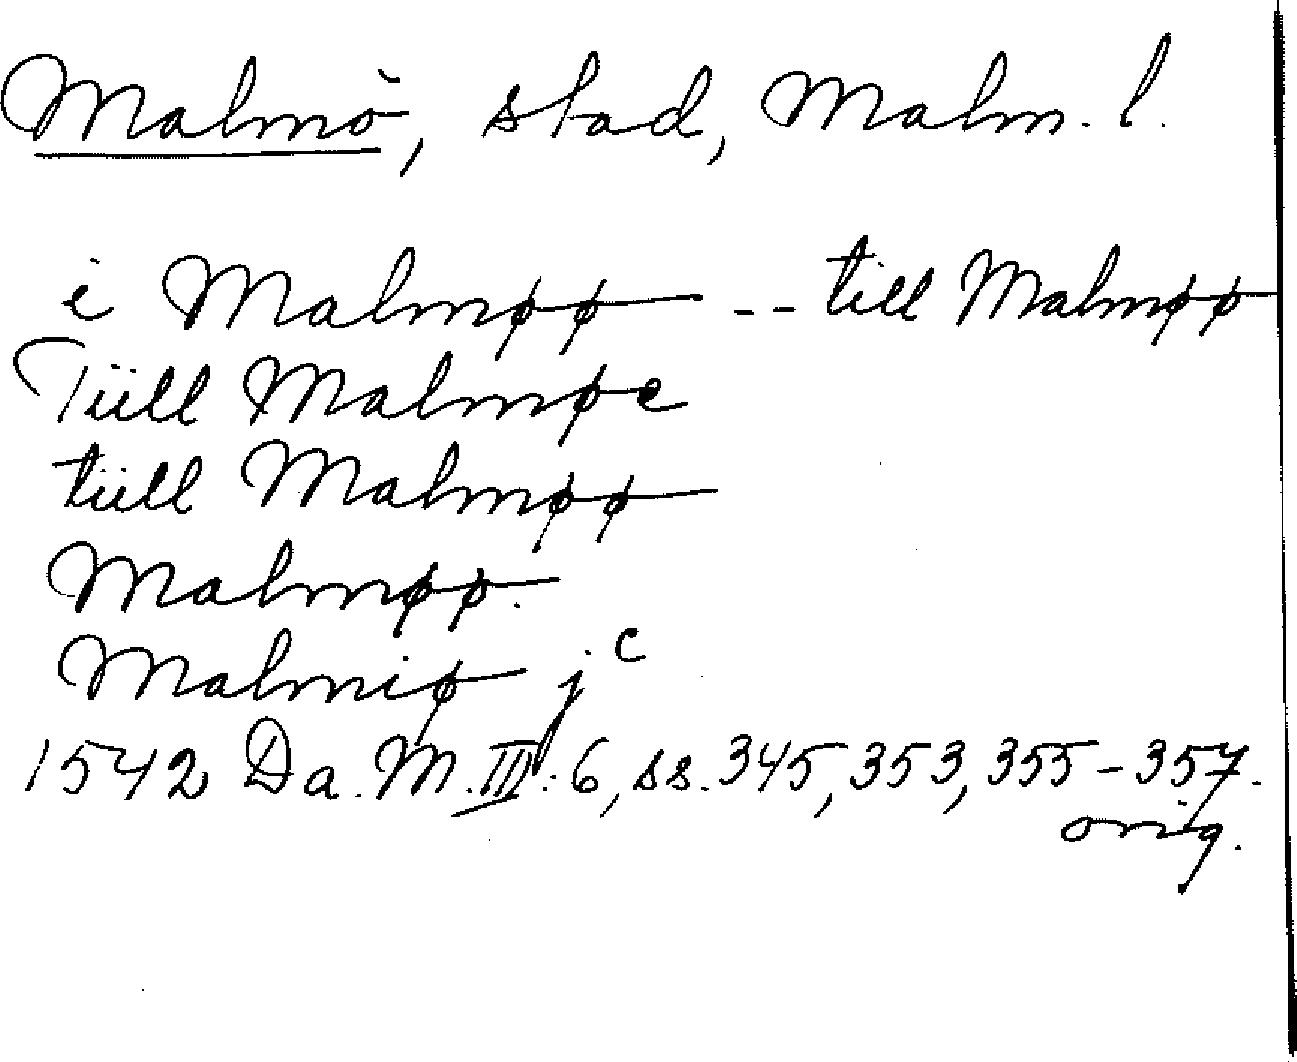 Malmö, stad, Malm. l.
i Malmøø -- till Malmøø
Tiill Malmøe
tiill Malmøø
Malmøø.
Malmiø jc
1542 Da. M. III: 6, ss. 345, 353, 355-357.
orig.